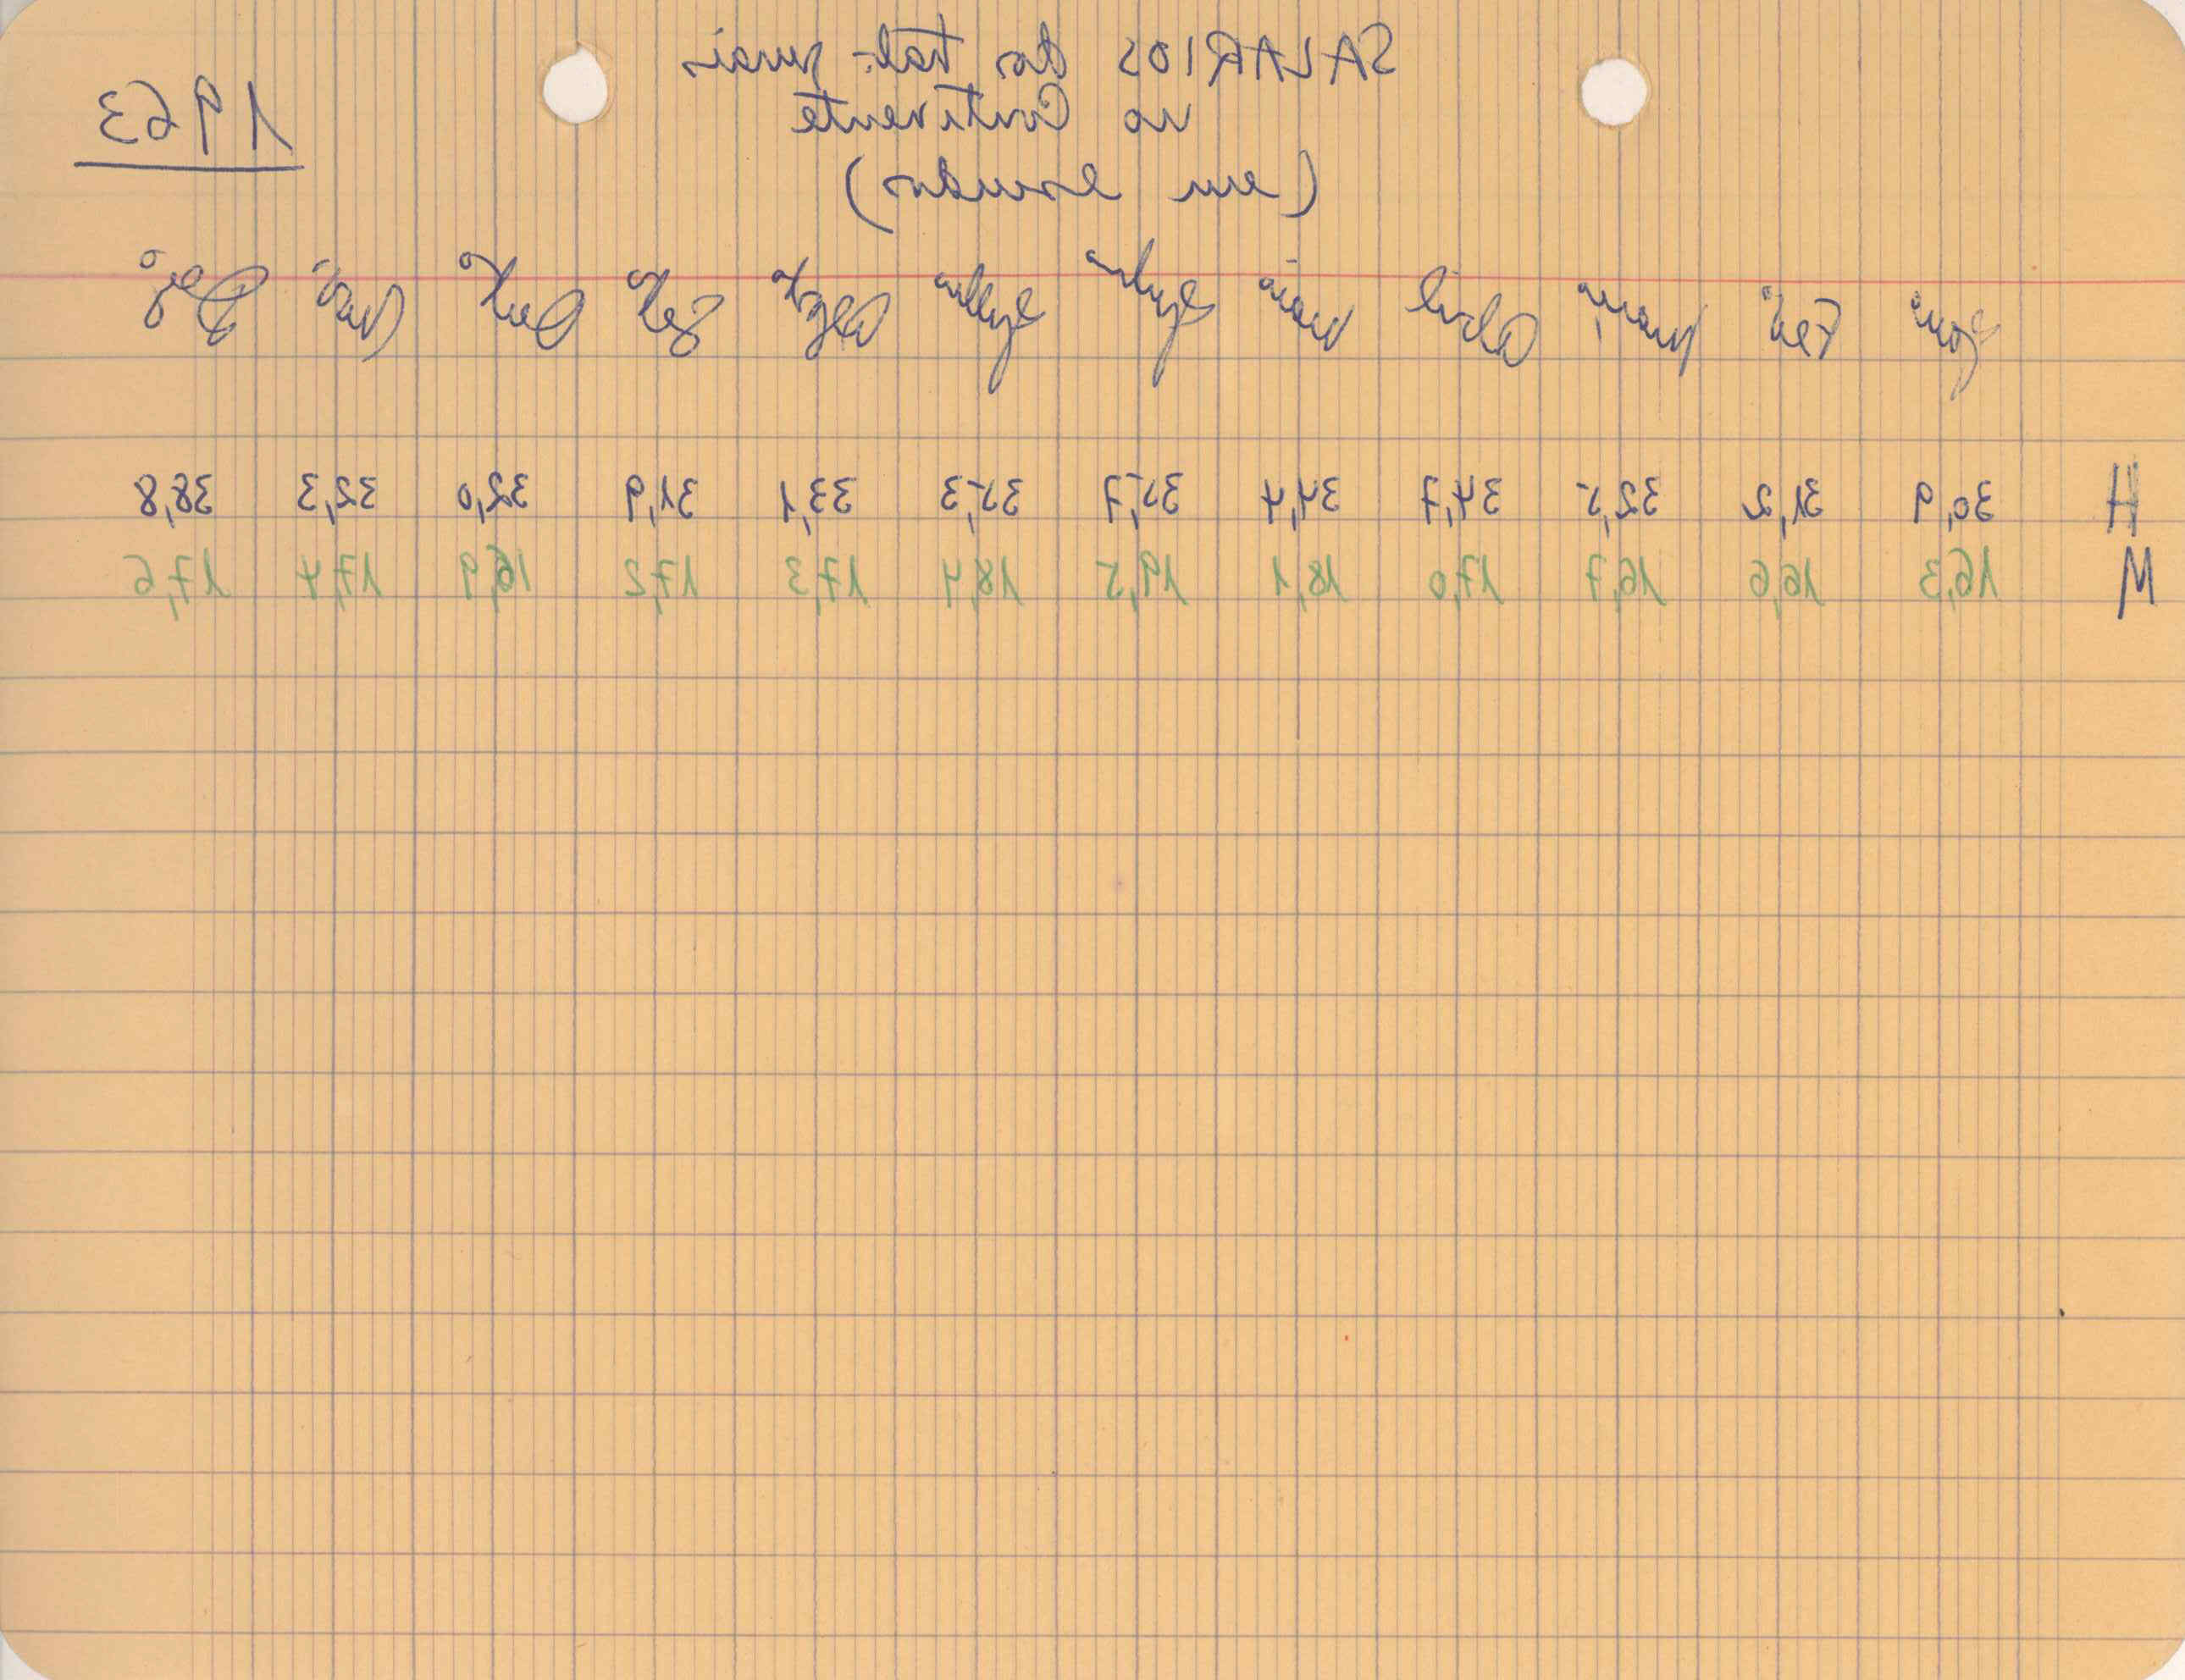 SALARIOS dos trab. rurais
no Continente
(em escudos)
1963
Janº Fevº Março Abril Maio Junho Julho Agosto Setº Outº Novº Dezº
H 30,9 31,2 32,5 34,7 34,4 35,7 35,3 33,1 31,9 32,0 32,3 38,8
M 16,3 16,6 16,7 17,0 18,1 19,5 18,4 17,3 17,2 16,9 17,4 17,6